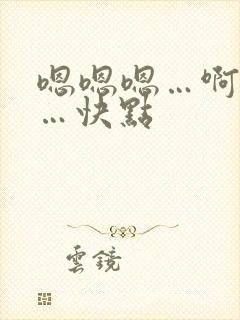 嗯嗯嗯…啊
…快點
雲鏡